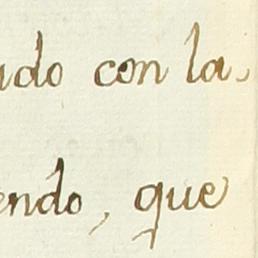 ado con la,
endo, que